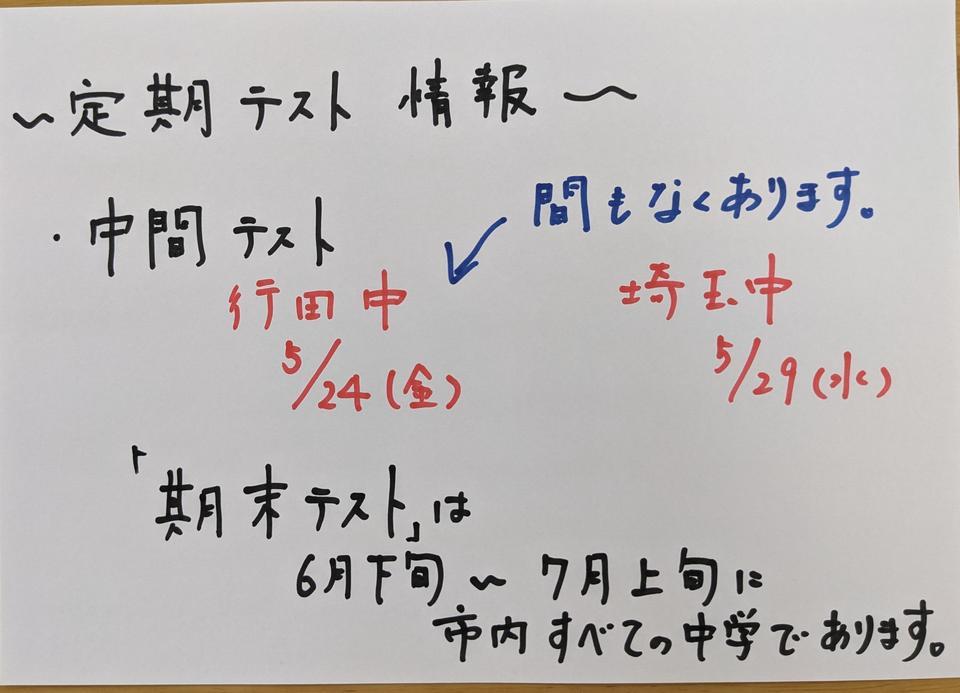 ～定期テスト 情報～
・中間テスト
間もなくあります。
行田中
5/24(金)
埼玉中
5/29(水)
「期末テスト」は
6月下旬～7月上旬に
市内すべての中学であります。